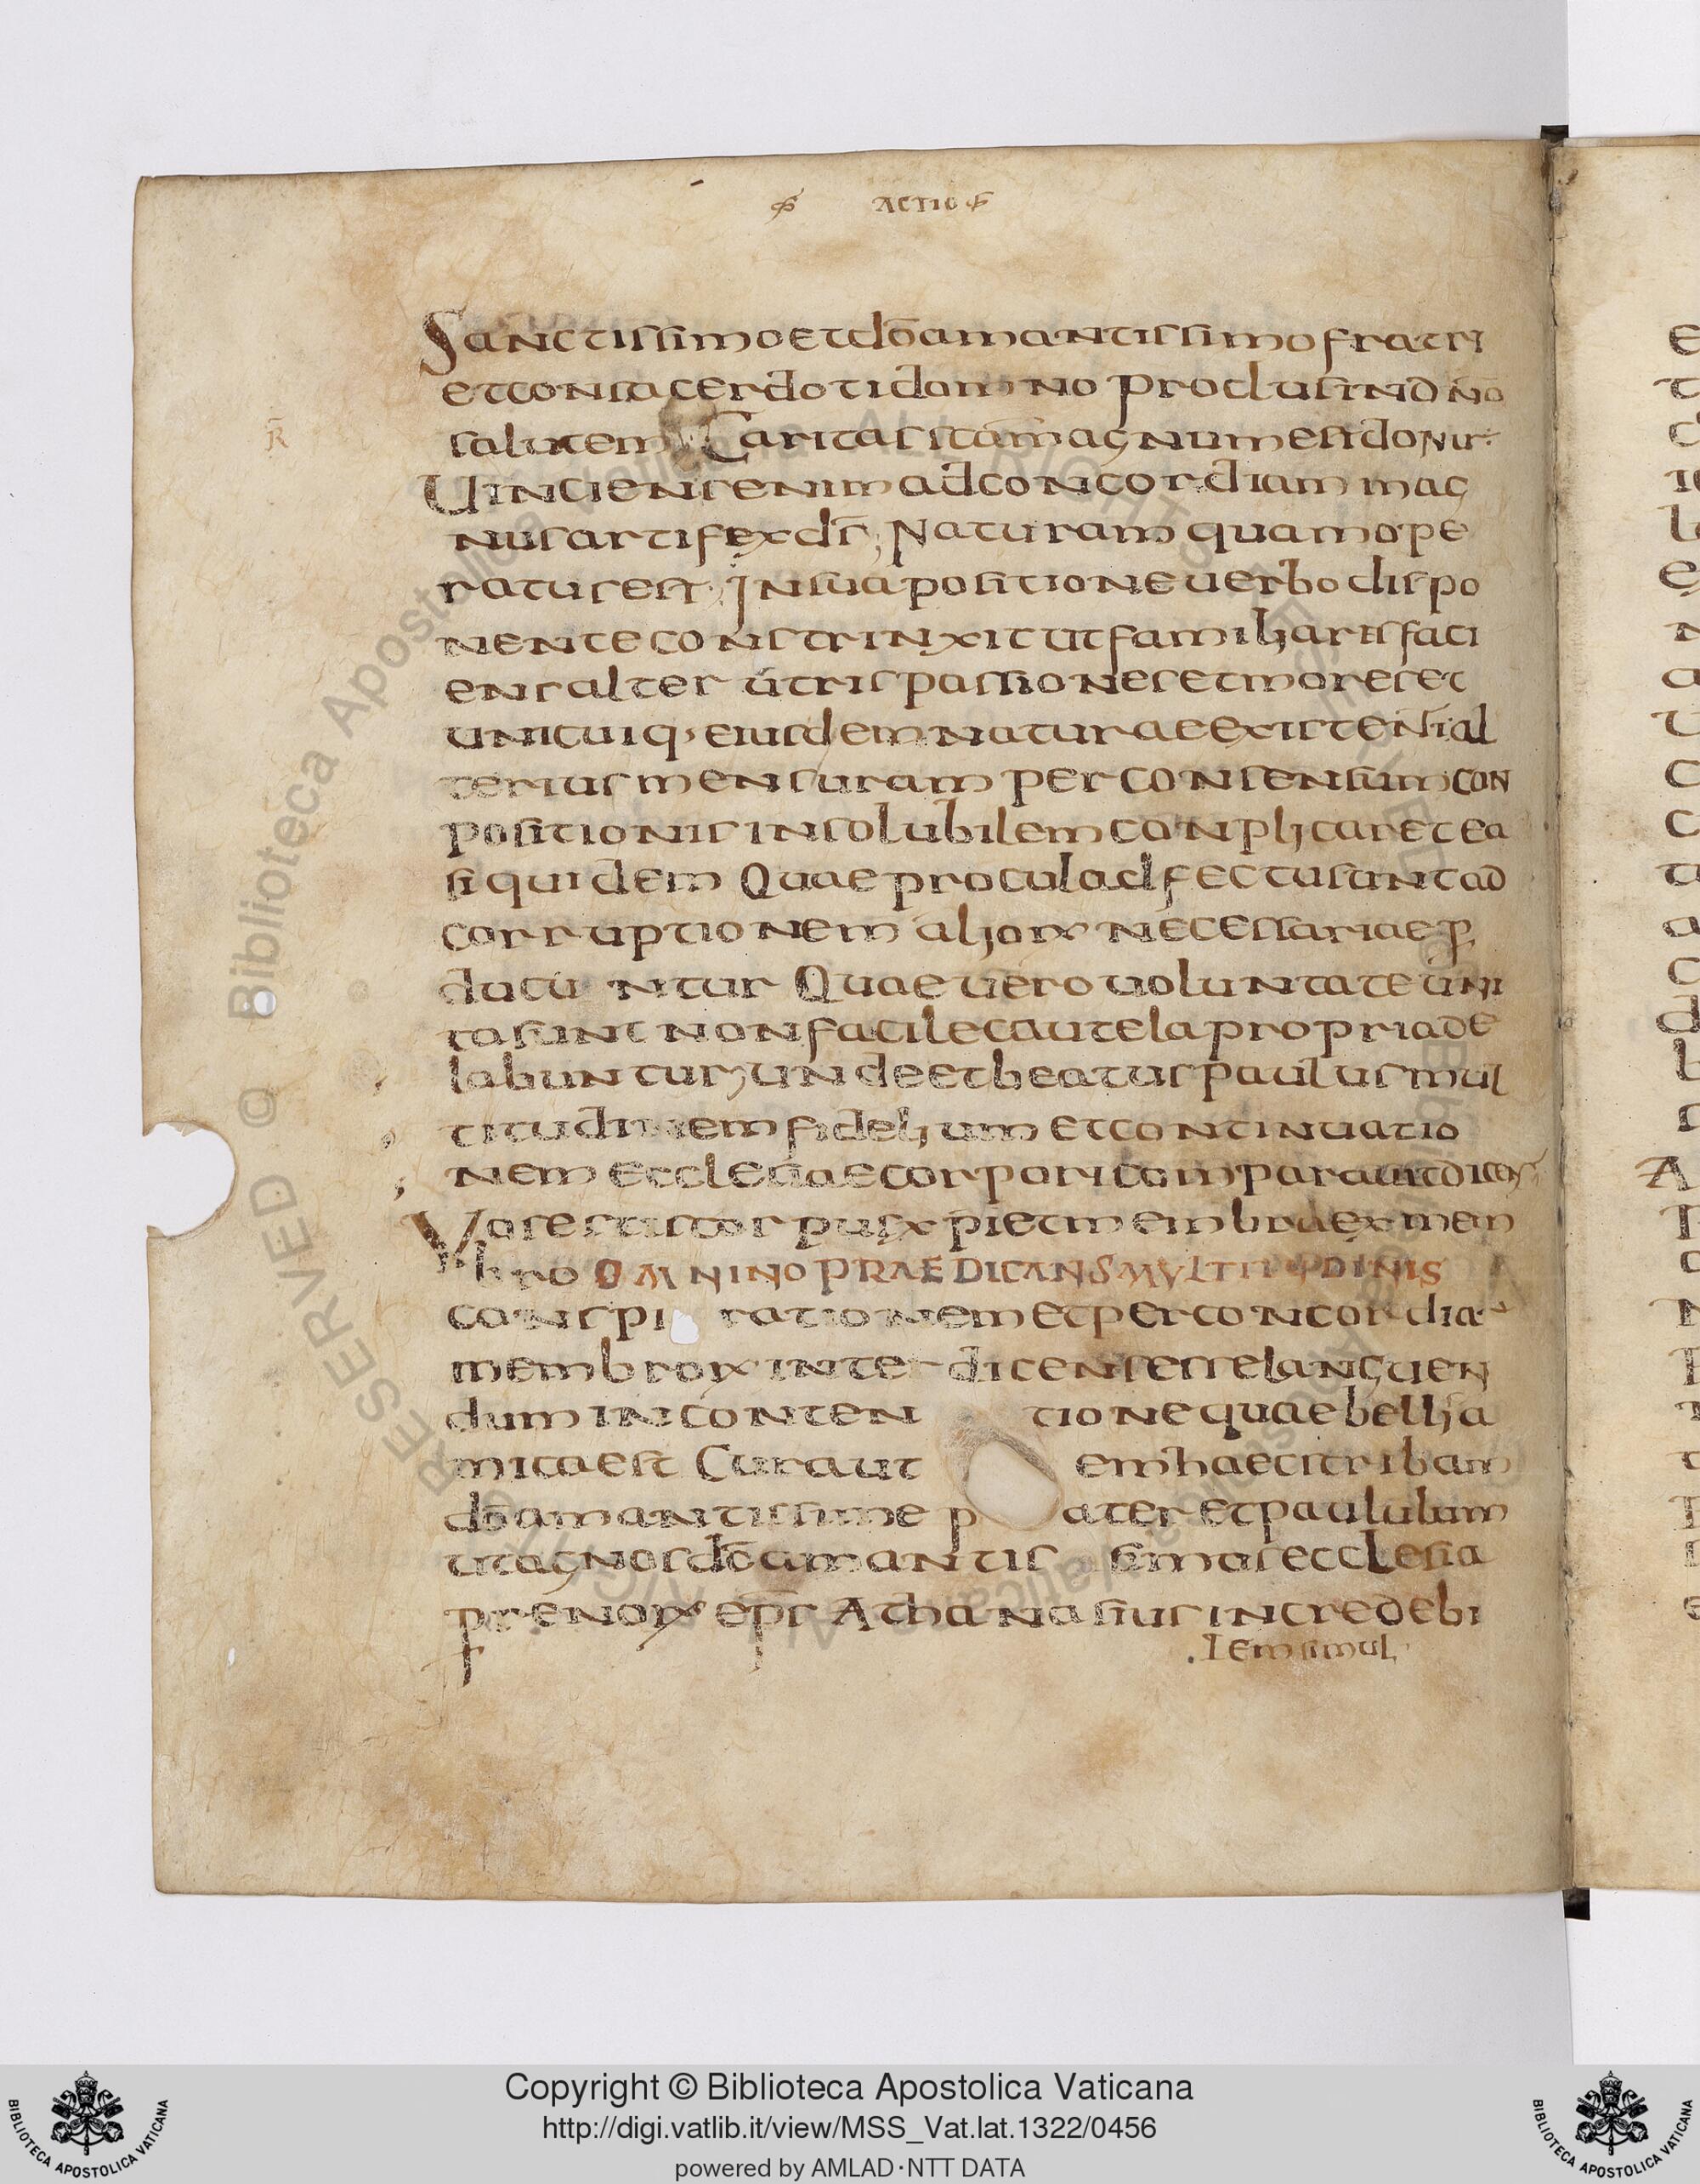 ACTIO
Sanctissimo et dō amantissimo fratri
et consacerdoti domno Proclus in dn̄o
salutem Caritas s̄ tam magnum est donū
Uinciens enim ad concordiam mag
nus artifex ds̄; Naturam quam ope
ratus est. In sua positione uerbo dispo
nente constrinxit ut familiaris faci
ens alter utris passiones et mores et
unicuiq· eiusdem naturae existensi al
terius mensuram per consensum con
positionis insolubilem conplicaret ea
si quidem Quae procul adfectu sunt ad
corruptionem aliorx necessariae p
ducuntur Quae uero uoluntate uni
ta sunt non facile cautela propria de
labuntur; unde et beatus paulus mul
titudinem fidelium et continuatio
nem ecclesiae corpori comparauit dicens
Vos estis corpus xpi et membra ex men
bro OMNINO PRAEDICANS MVLTITUDINIS
conspirationem et per concordia
membrorx inter dicens esse languen
dum in contentione quae belli a
mica est Cur aut em haec scribam
dō amantissime pater et paululum
ut agnos dō amantissimos ecclesia
prenorx eps̄ Athanasius incredebi
.Iem simul,
Copyright © Biblioteca Apostolica Vaticana
http://digi.vatlib.it/view/MSS_Vat.lat.1322/0456
powered by AMLAD·NTT DATA
BIBLIOTECA APOSTOLICA VATICANA
BIBLIOTECA APOSTOLICA VATICANA